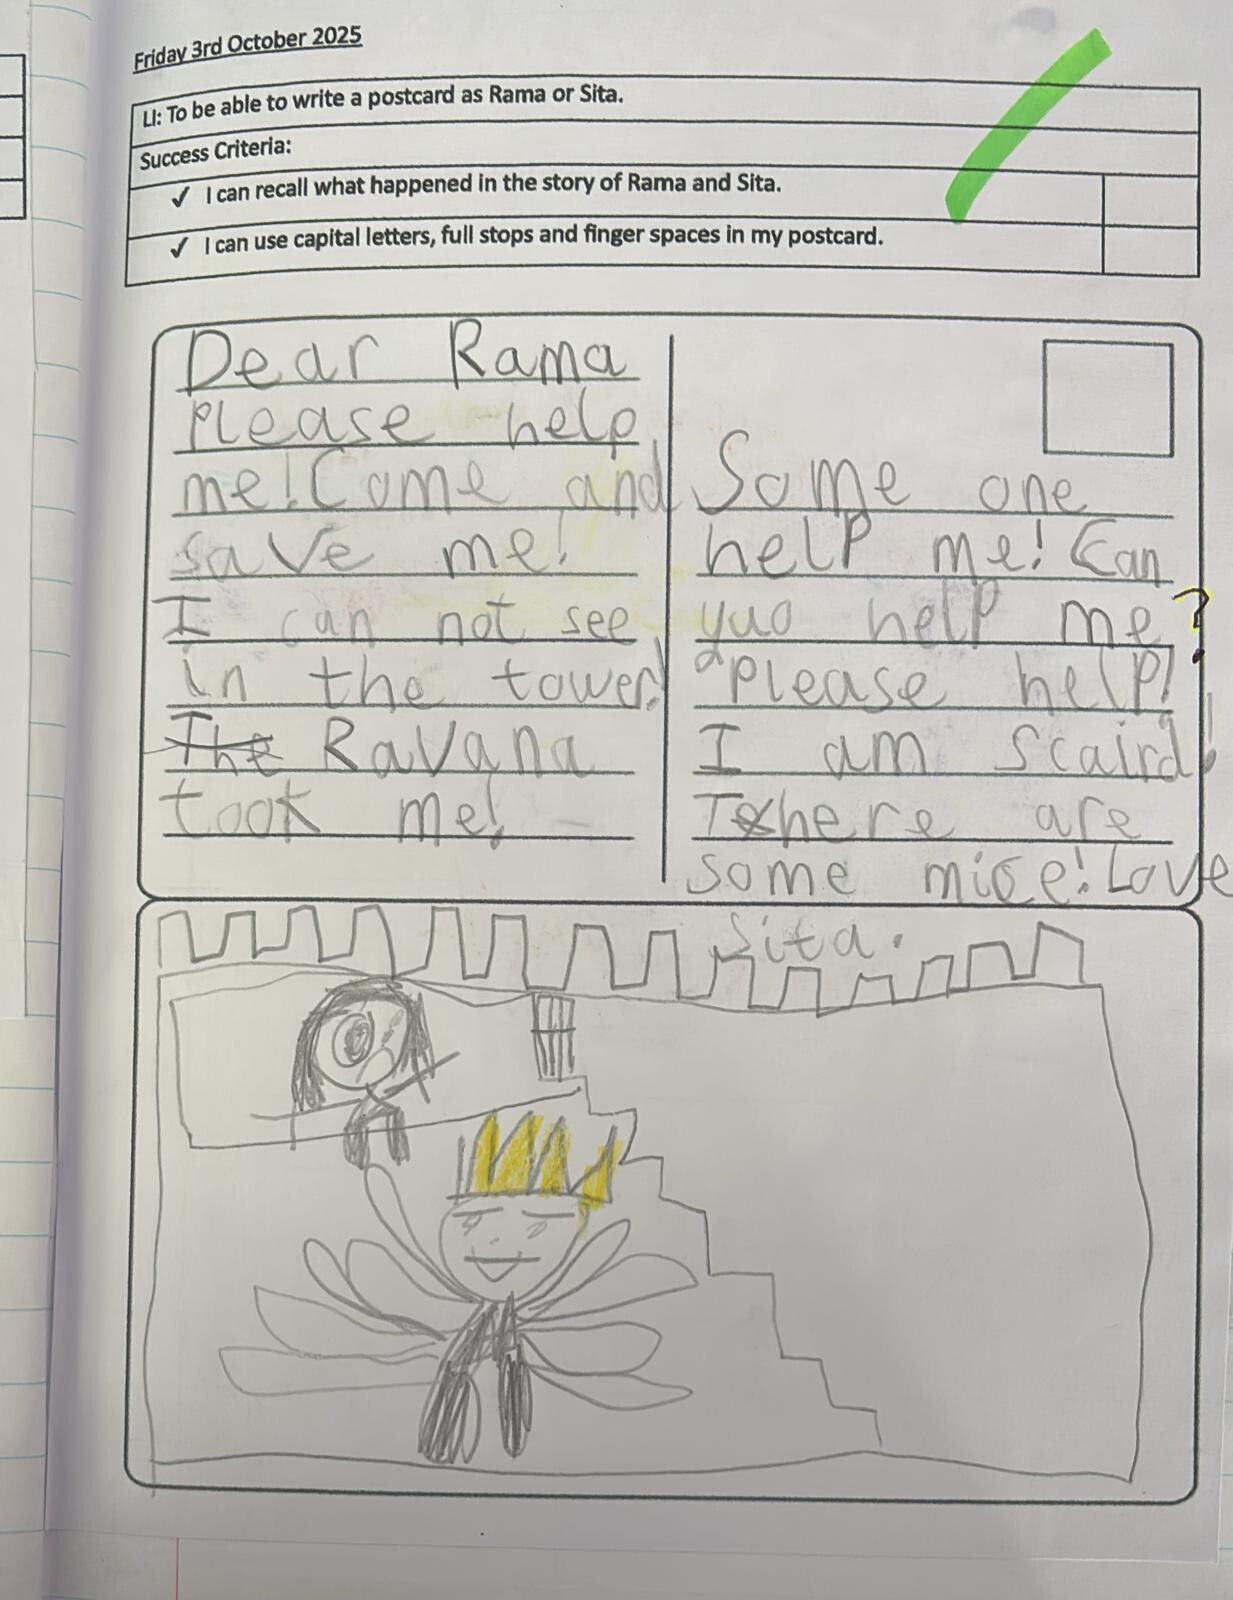 Friday 3rd October 2025
LI: To be able to write a postcard as Rama or Sita.
Success Criteria:
✓ I can recall what happened in the story of Rama and Sita.
✓ I can use capital letters, full stops and finger spaces in my postcard.
Dear Rama
Please help
me! Come and
save me!
I can not see
in the tower!
The Ravana
took me!
Some one
help me! Can
yuo help me?
please help!
I am scaird!
There are
some mice! Love
Sita.